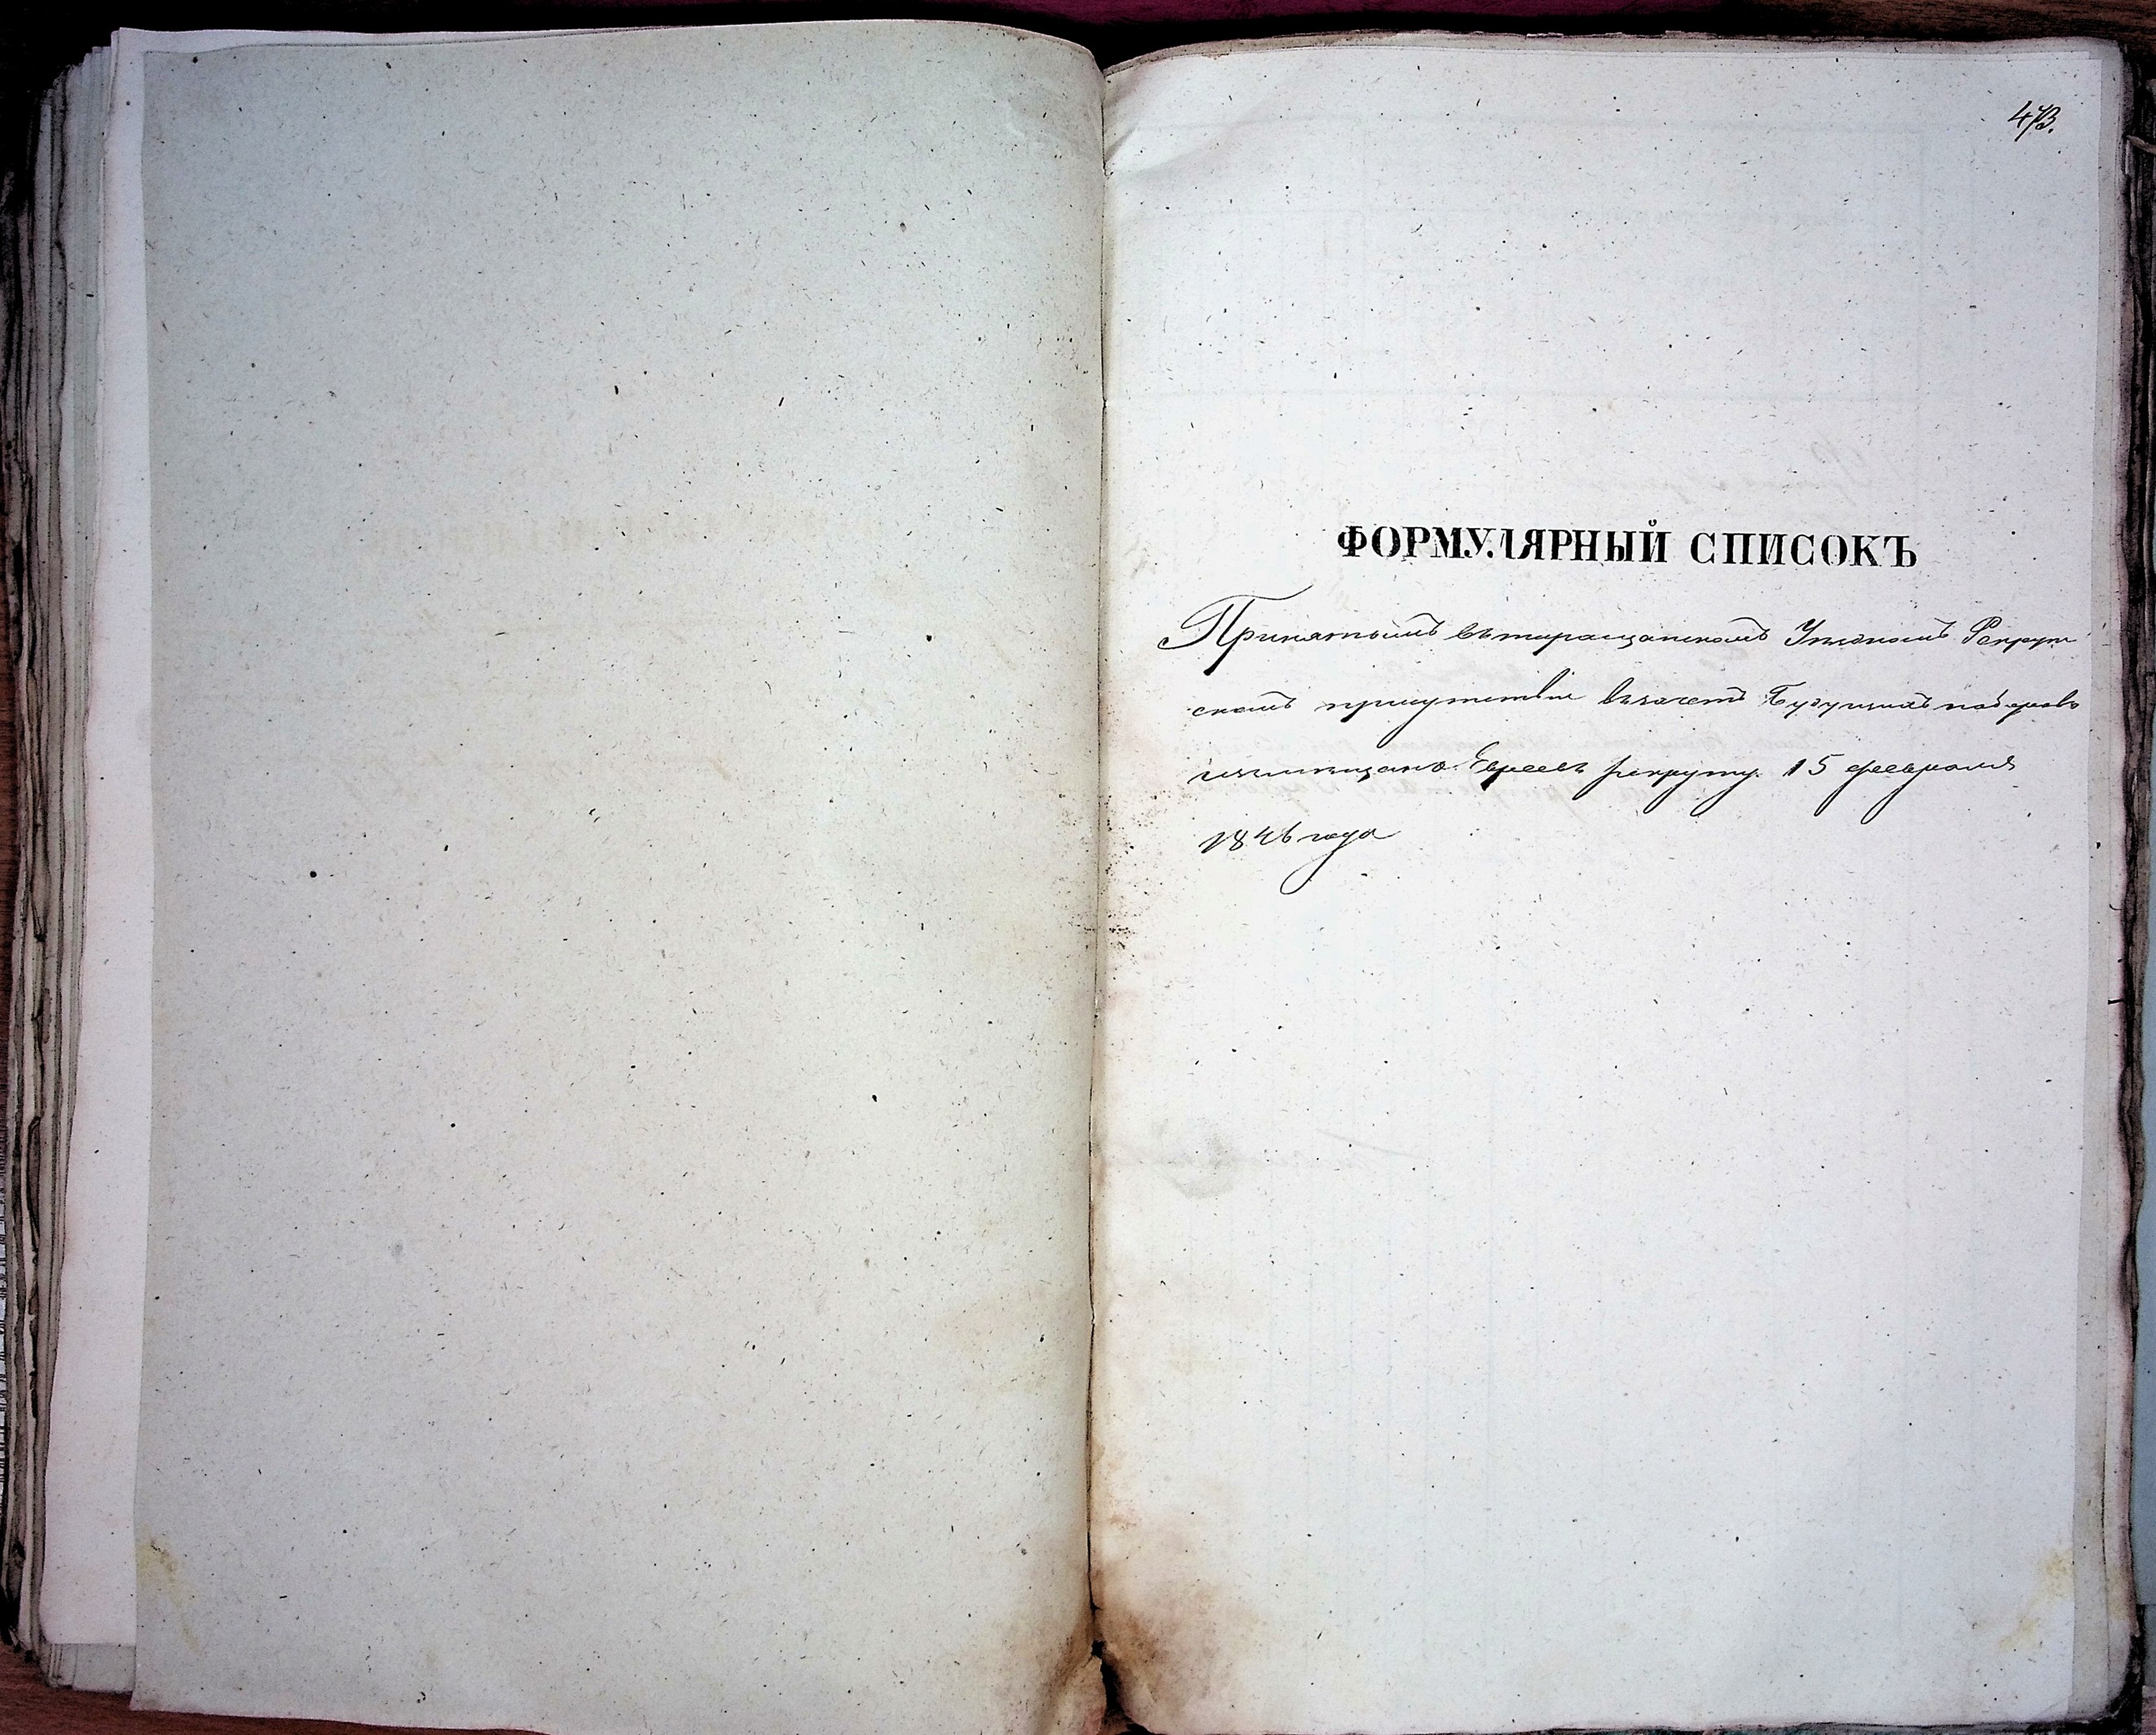 473.
ФОРМУЛЯРНЫЙ СПИСОКЪ
Принятымъ въ таращанскомъ Уѣздномъ Рекрут
скомъ присутствіи въ зачетъ Будущихъ наборовъ
изъ мѣщанъ Евреевъ рекруту 15 февраля
1846 года